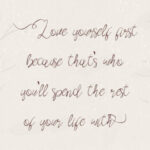 Love yourself first
because that's who
you'll spend the rest
of your life with